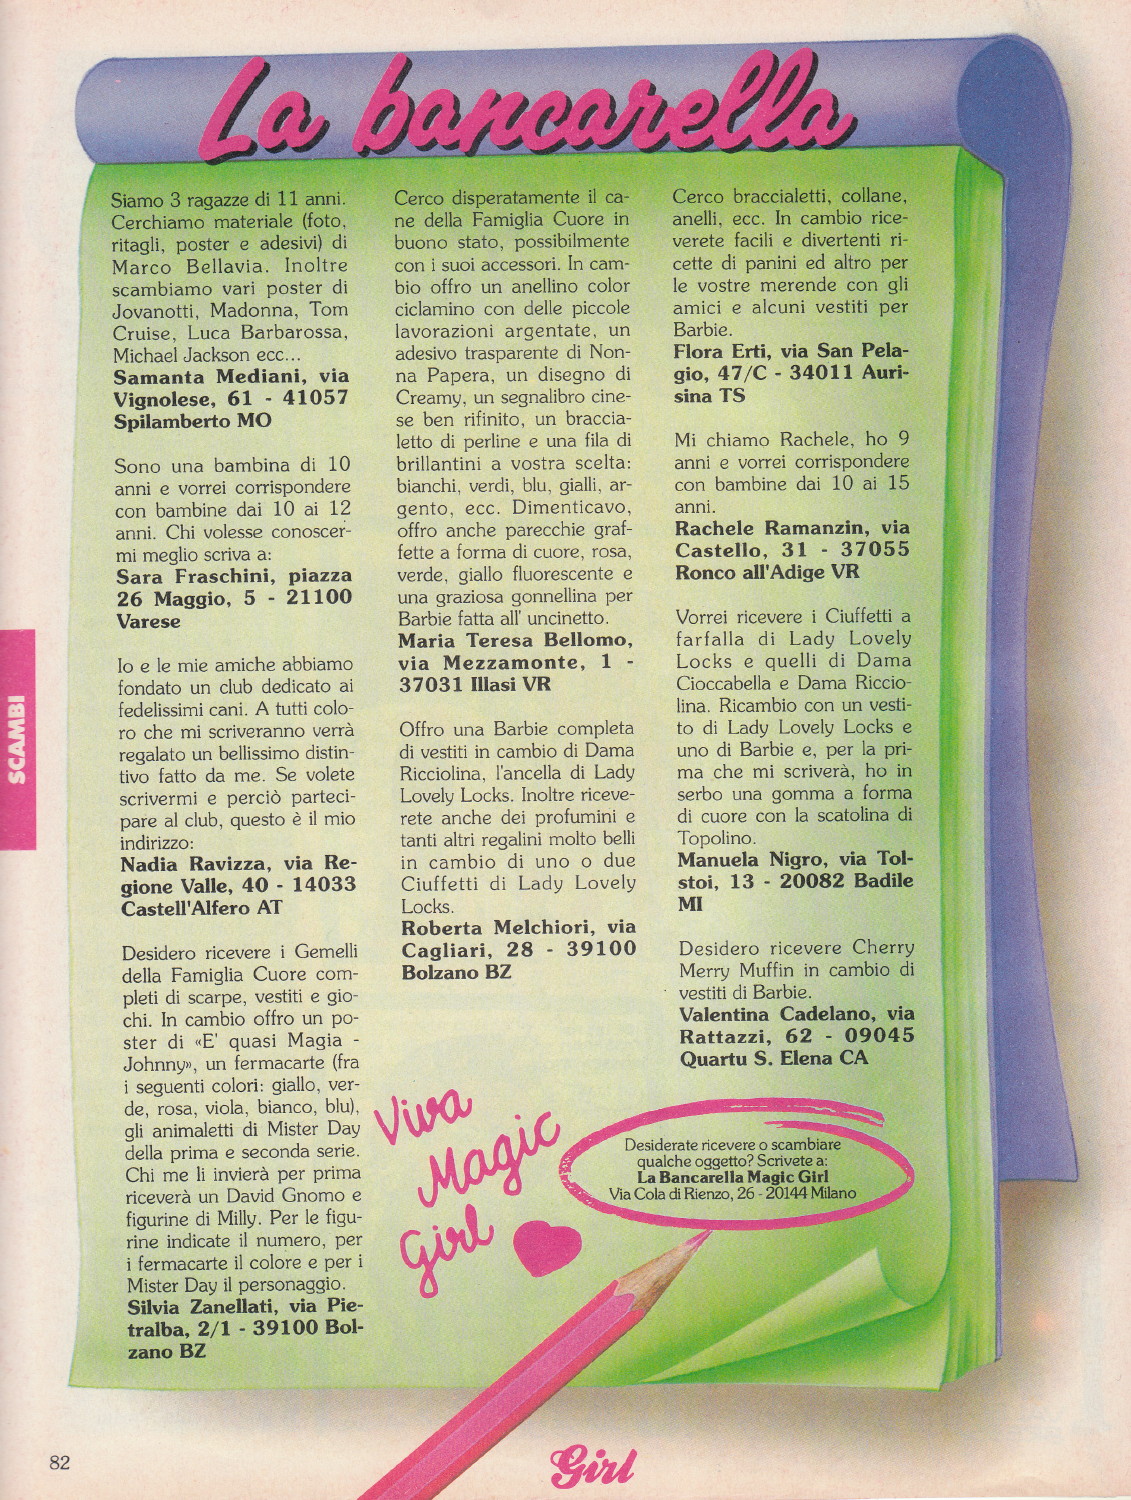 La bancarella
Siamo 3 ragazze di 11 anni.
Cerchiamo materiale (foto,
ritagli, poster e adesivi) di
Marco Bellavia. Inoltre
scambiamo vari poster di
Jovanotti, Madonna, Tom
Cruise, Luca Barbarossa,
Michael Jackson ecc...
Samanta Mediani, via
Vignolese, 61 - 41057
Spilamberto MO
Sono una bambina di 10
anni e vorrei corrispondere
con bambine dai 10 ai 12
anni. Chi volesse conoscer-
mi meglio scriva a:
Sara Fraschini, piazza
26 Maggio, 5 - 21100
Varese
Io e le mie amiche abbiamo
fondato un club dedicato ai
fedelissimi cani. A tutti colo-
ro che mi scriveranno verrà
regalato un bellissimo distin-
tivo fatto da me. Se volete
scrivermi e perciò parteci-
pare al club, questo è il mio
indirizzo:
Nadia Ravizza, via Re-
gione Valle, 40 - 14033
Castell'Alfero AT
Desidero ricevere i Gemelli
della Famiglia Cuore com-
pleti di scarpe, vestiti e gio-
chi. In cambio offro un po-
ster di «E' quasi Magia -
Johnny», un fermacarte (fra
i seguenti colori: giallo, ver-
de, rosa, viola, bianco, blu),
gli animaletti di Mister Day
della prima e seconda serie.
Chi me li invierà per prima
riceverà un David Gnomo e
figurine di Milly. Per le figu-
rine indicate il numero, per
i fermacarte il colore e per i
Mister Day il personaggio.
Silvia Zanellati, via Pie-
tralba, 2/1 - 39100 Bol-
zano BZ
Cerco disperatamente il ca-
ne della Famiglia Cuore in
buono stato, possibilmente
con i suoi accessori. In cam-
bio offro un anellino color
ciclamino con delle piccole
lavorazioni argentate, un
adesivo trasparente di Non-
na Papera, un disegno di
Creamy, un segnalibro cine-
se ben rifinito, un braccia-
letto di perline e una fila di
brillantini a vostra scelta:
bianchi, verdi, blu, gialli, ar-
gento, ecc. Dimenticavo,
offro anche parecchie graf-
fette a forma di cuore, rosa,
verde, giallo fluorescente e
una graziosa gonnellina per
Barbie fatta all' uncinetto.
Maria Teresa Bellomo,
via Mezzamonte, 1 -
37031 Illasi VR
Offro una Barbie completa
di vestiti in cambio di Dama
Ricciolina, l'ancella di Lady
Lovely Locks. Inoltre riceve-
rete anche dei profumini e
tanti altri regalini molto belli
in cambio di uno o due
Ciuffetti di Lady Lovely
Locks.
Roberta Melchiori, via
Cagliari, 28 - 39100
Bolzano BZ
Cerco braccialetti, collane,
anelli, ecc. In cambio rice-
verete facili e divertenti ri-
cette di panini ed altro per
le vostre merende con gli
amici e alcuni vestiti per
Barbie.
Flora Erti, via San Pela-
gio, 47/C - 34011 Auri-
sina TS
Mi chiamo Rachele, ho 9
anni e vorrei corrispondere
con bambine dai 10 ai 15
anni.
Rachele Ramanzin, via
Castello, 31 - 37055
Ronco all'Adige VR
Vorrei ricevere i Ciuffetti a
farfalla di Lady Lovely
Locks e quelli di Dama
Cioccabella e Dama Riccio-
lina. Ricambio con un vesti-
to di Lady Lovely Locks e
uno di Barbie e, per la pri-
ma che mi scriverà, ho in
serbo una gomma a forma
di cuore con la scatolina di
Topolino.
Manuela Nigro, via Tol-
stoi, 13 - 20082 Badile
MI
Desidero ricevere Cherry
Merry Muffin in cambio di
vestiti di Barbie.
Valentina Cadelano, via
Rattazzi, 62 - 09045
Quartu S. Elena CA
Viva
Magic
Girl
Desiderate ricevere o scambiare
qualche oggetto? Scrivete a:
La Bancarella Magic Girl
Via Cola di Rienzo, 26 - 20144 Milano
SCAMBI
82
Girl